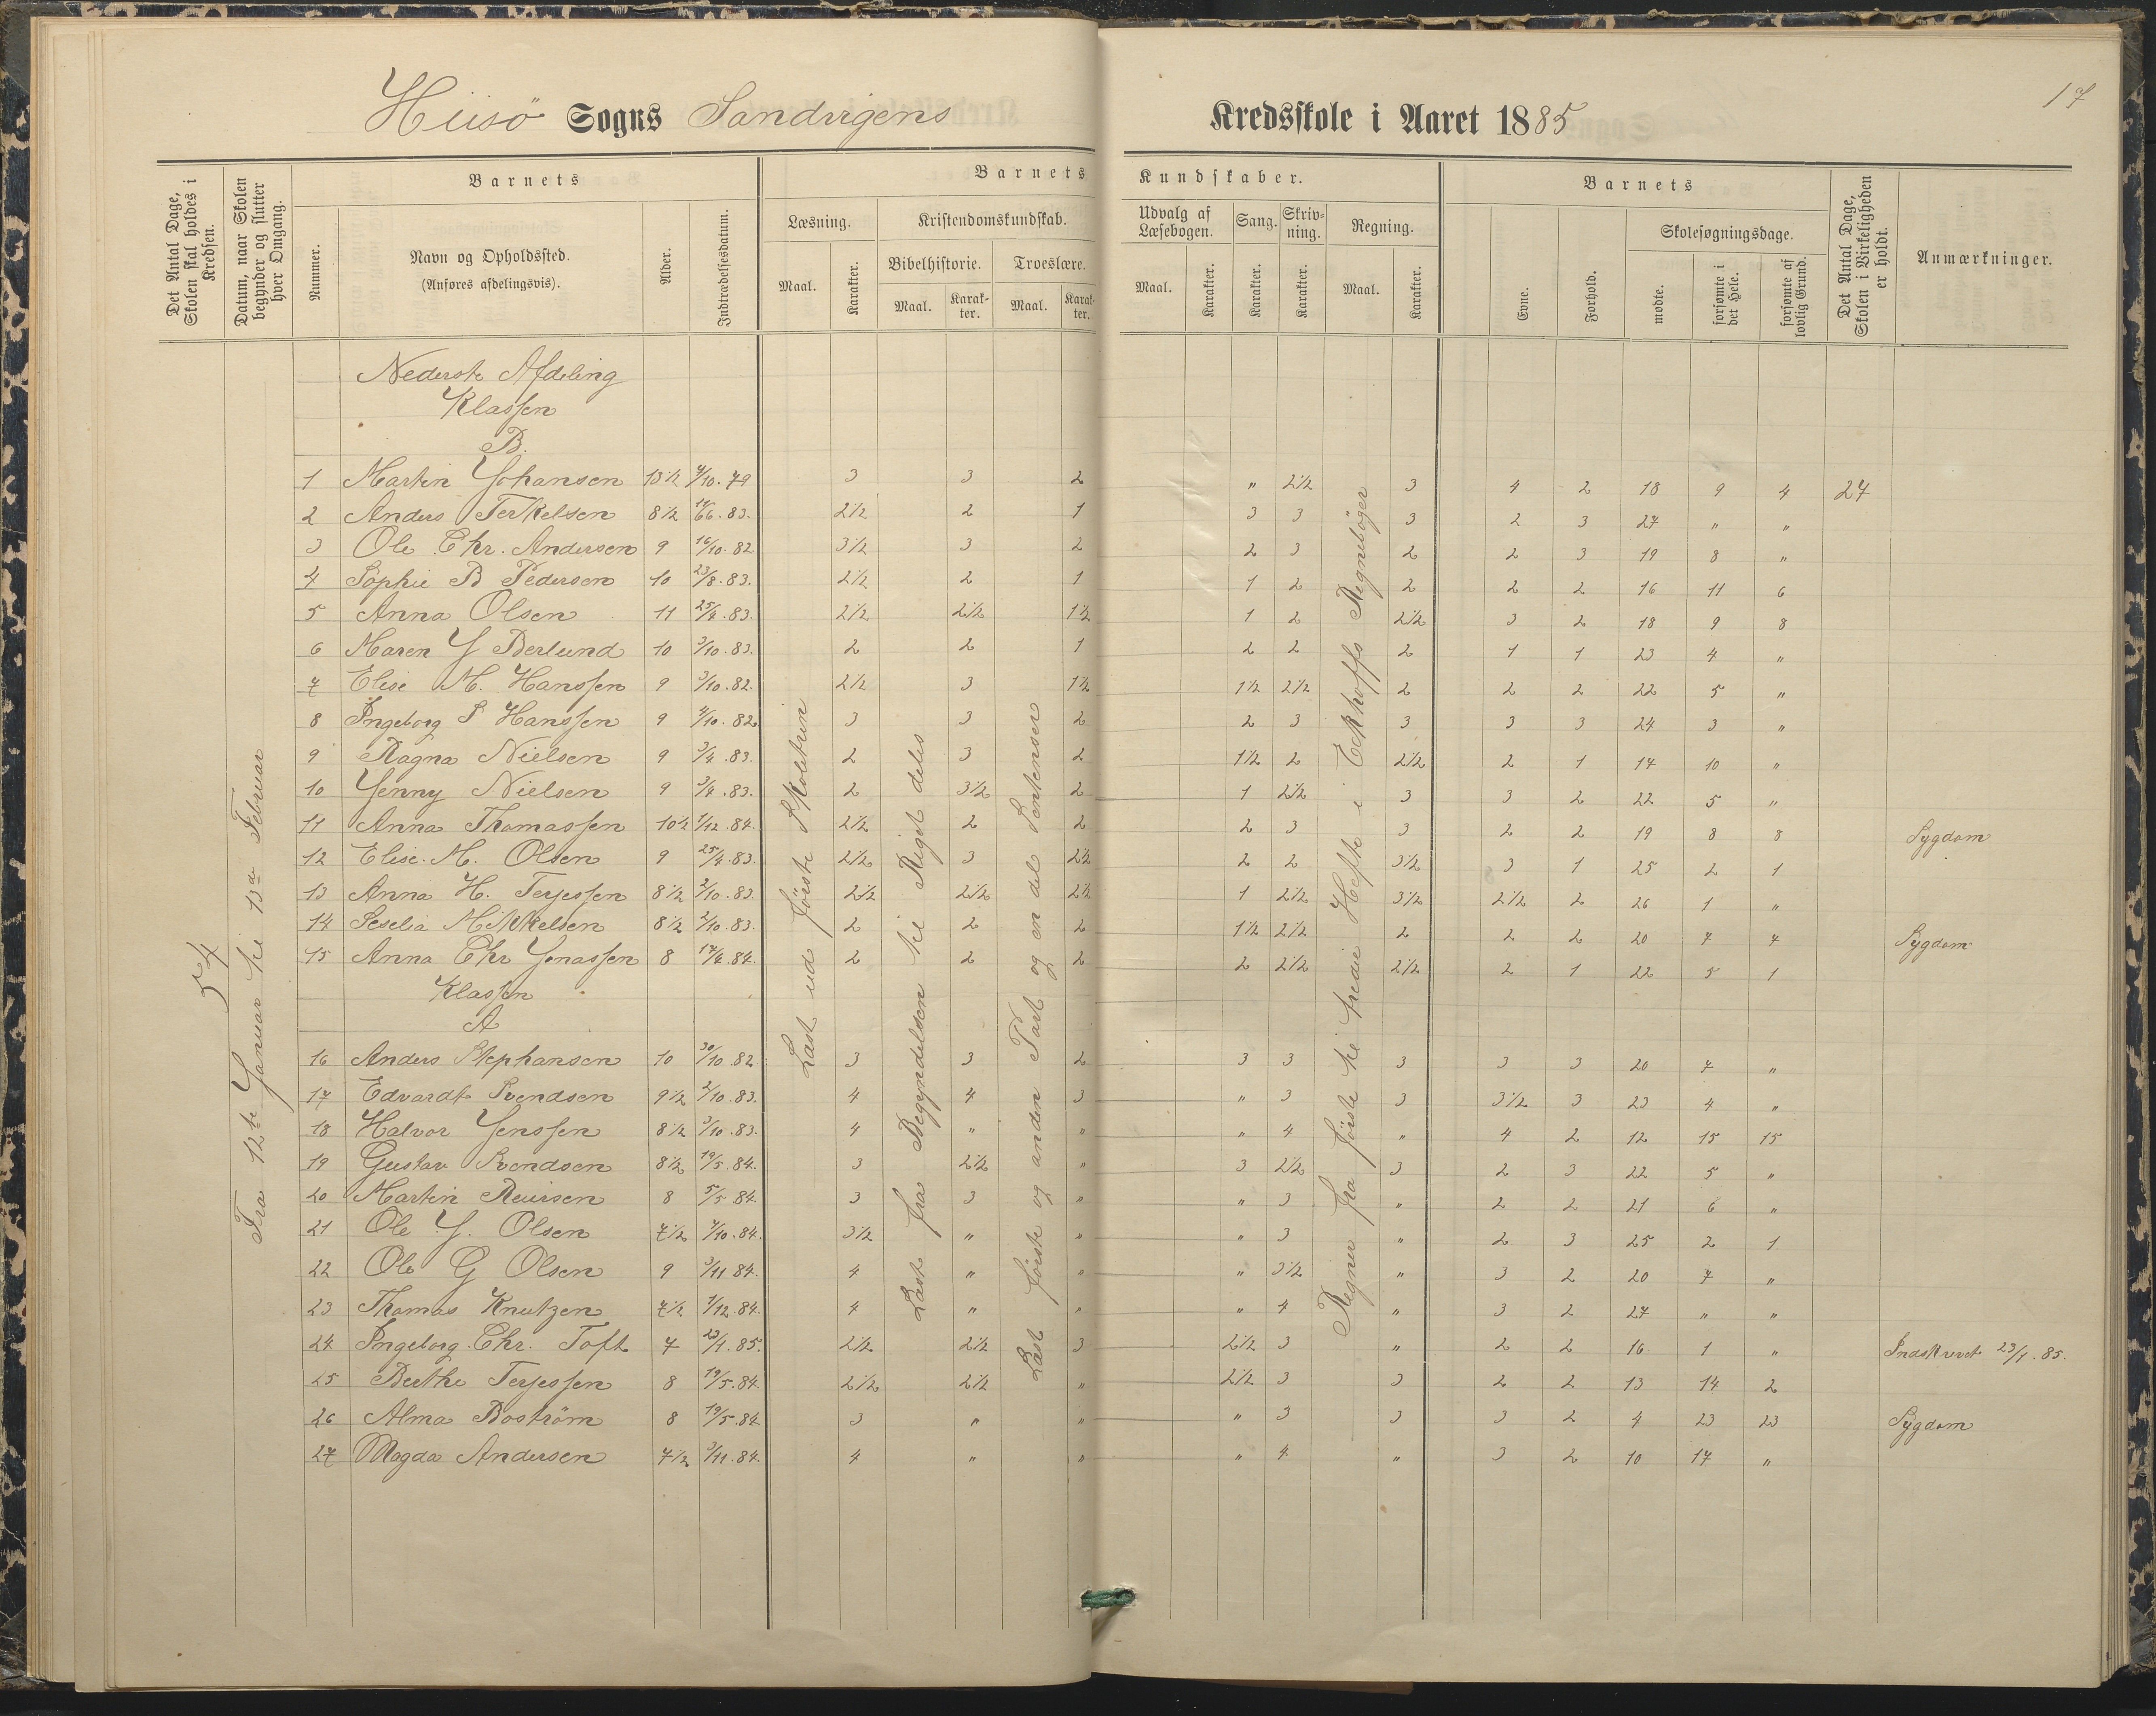 Hiisö Sogns Sandvigens Kredsskole i Aaret 1885
17
Det Antal Dage, Skolen skal holdes i Kredsen.
Datum, naar Skolen begynder og slutter hver Omgang.
Barnets
Nummer.
Navn og Opholdssted.
(Anføres afdelingsvis).
Alder.
Indtrædelsesdatum.
Barnets Kundskaber.
Læsning. Kristendomskundskab. Udvalg af Læsebogen. Sang. Skrivning. Regning.
Bibelhistorie. Troeslære.
Maal. Karakter. Maal. Karakter. Maal. Karakter. Maal. Karakter. Karakter. Karakter. Maal. Karakter.
Barnets
Evne. Forhold. Skolesøgningsdage.
mødte. forsømte i det Hele. forsømte af lovlig Grund.
Det Antal Dage, Skolen i Virkeligheden er holdt.
Anmærkninger.
54
Fra 12te Januar til 13de Februar
Læst ud første Skoletrin
Læst fra Begyndelsen til Riget deles
Læst første og anden Part og en del Sentenser
Regner fra første til tredie Hefte i Eckhoffs Regnebøger
Nederste Afdeling
Klassen
B.
1 Martin Johansen 13 1/2 4/10. 79 3 3 2 " 2 1/2 3 4 2 18 9 4 27
2 Anders Terkelsen 8 1/2 11/6. 83. 2 1/2 2 1 3 3 3 2 3 27 " "
3 Ole Chr. Andersen 9 16/10. 82 3 1/2 3 2 2 3 2 2 3 19 8 "
4 Sophie B Pedersen 10 23/8. 83. 2 1/2 2 1 1 2 2 2 2 16 11 6
5 Anna Olsen 11 25/4. 83. 2 1/2 2 1/2 1 1/2 1 2 2 1/2 3 2 18 9 8
6 Maren J Berlund 10 3/10. 83. 2 2 1 2 2 2 1 1 23 4 "
7 Elise M. Hanssen 9 3/10. 82. 2 1/2 3 1 1/2 1 1/2 2 1/2 2 2 2 22 5 "
8 Ingeborg S Hanssen 9 4/10. 82 3 3 2 2 3 3 3 3 24 3 "
9 Ragna Nielsen 9 3/4. 83. 2 3 2 1 1/2 2 2 1/2 2 1 17 10 "
10 Jenny Nielsen 9 3/4. 83. 2 3 1/2 2 1 2 1/2 3 3 2 22 5 "
11 Anna Thomassen 10 1/2 1/12. 84. 2 1/2 2 2 2 3 3 2 2 19 8 8 Sygdom
12 Elise. M. Olsen 9 25/4. 83. 2 1/2 3 2 1/2 2 2 3 1/2 3 1 25 2 1
13 Anna H. Terjessen 8 1/2 2/10. 83. 2 1/2 2 1/2 2 1/2 1 2 1/2 3 1/2 2 1/2 2 26 1 "
14 Seselia Mikkelsen 8 1/2 2/10. 83. 2 2 2 1 1/2 2 1/2 2 2 2 20 7 7 Sygdom
15 Anna Chr Jonassen 8 17/4. 84. 2 2 2 2 2 1/2 2 1/2 2 1 22 5 1
Klassen
A
16 Anders Stephansen 10 30/10. 82. 3 3 2 3 3 3 3 3 20 7 "
17 Edvardt Svendsen 9 1/2 2/10. 83. 4 4 3 " 3 3 3 1/2 3 23 4 "
18 Halvor Jenssen 8 1/2 3/10. 83. 4 " " " 4 " 4 2 12 15 15
19 Gustav Svendsen 8 1/2 19/5. 84. 3 2 1/2 " 3 2 1/2 3 2 3 22 5 "
20 Martin Reiersen 8 5/5 84. 3 3 " " 3 " 2 2 21 6 "
21 Ole J. Olsen 7 1/2 7/10. 84. 3 1/2 " " " 3 " 2 3 25 2 1
22 Ole G Olsen 9 3/11 84. 4 " " " 3 1/2 " 3 2 20 7 "
23 Thomas Knutzen 7 1/2 1/12. 84. 4 " " " 4 " 3 2 27 " "
24 Ingeborg Chr. Toft 7 23/1. 85. 2 1/2 2 1/2 3 2 1/2 3 " 2 2 16 1 " Indskrevet 23/1. 85.
25 Berthe Terjessen 8 19/5. 84. 2 1/2 2 1/2 " 2 1/2 3 3 2 2 13 14 2
26 Alma Boström 8 19/5. 84. 3 " " " 3 3 3 2 4 23 23 Sygdom
27 Magda Andersen 7 1/2 3/11. 84. 4 " " " 4 " 3 2 10 17 "